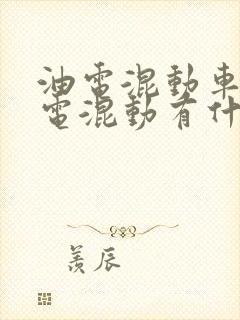 油電混動車
電混動有什
羨辰